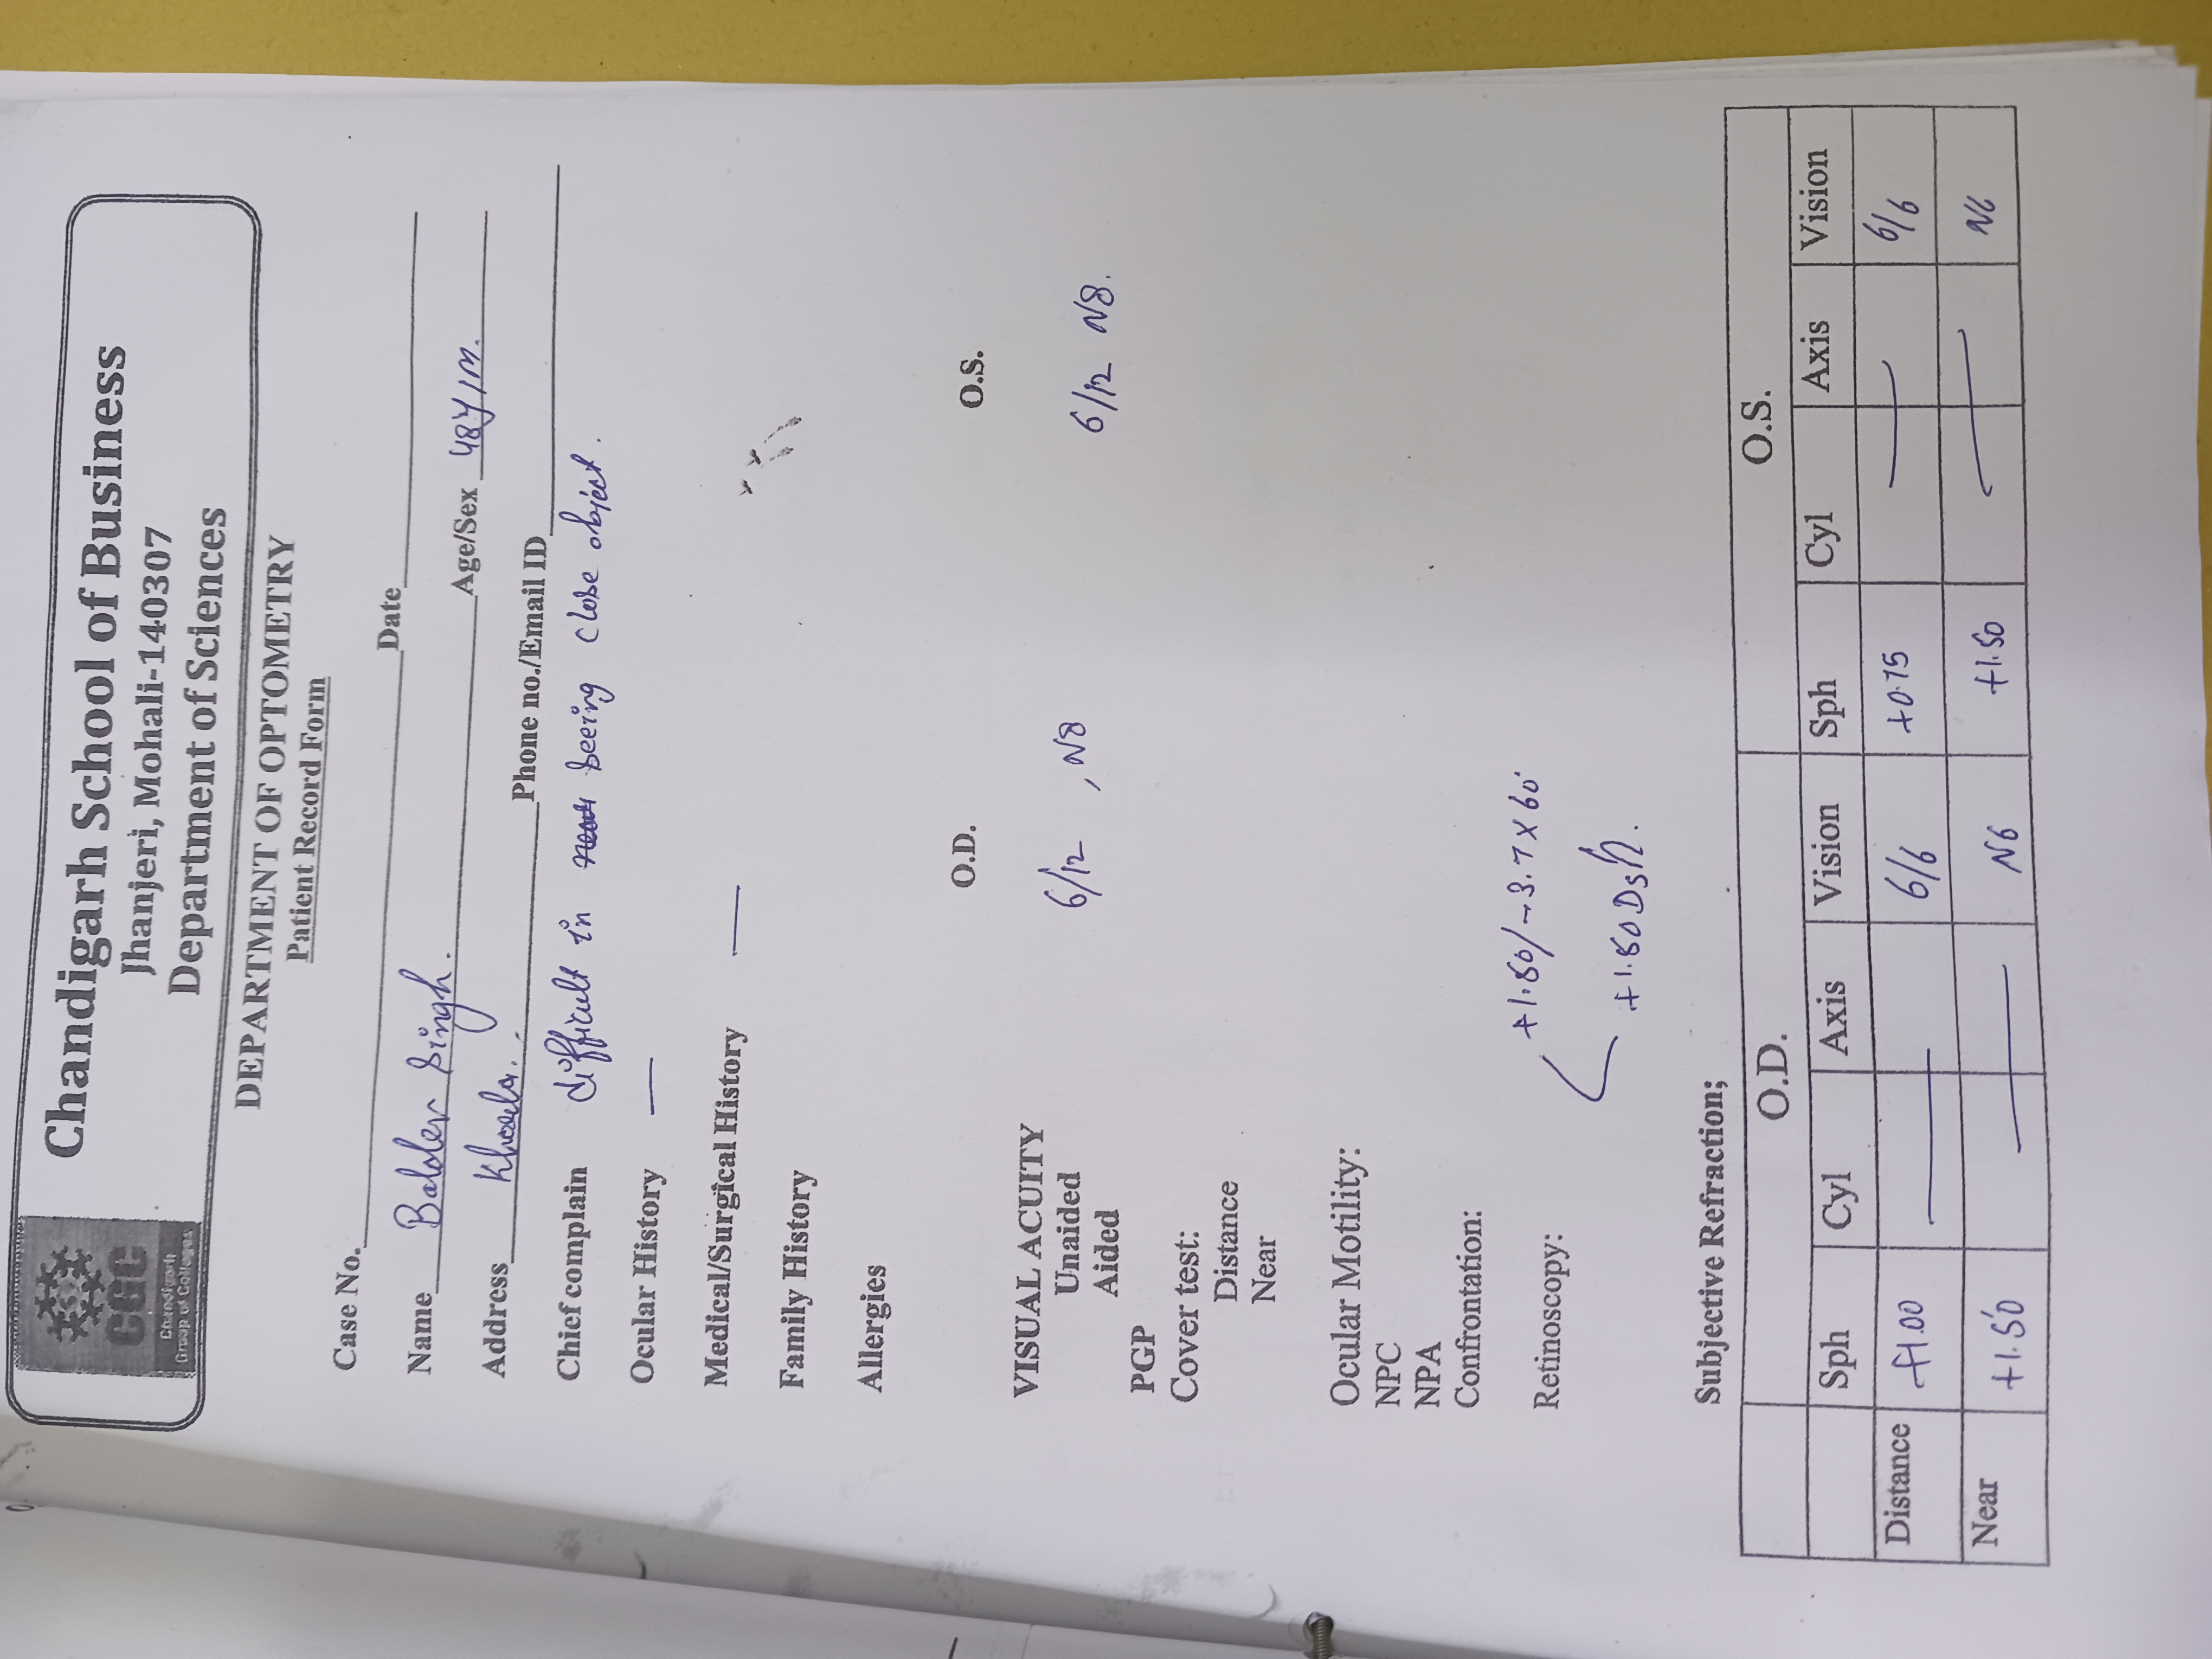 CGC
Chandigarh
Group of Colleges
Chandigarh School of Business
Jhanjeri, Mohali-140307
Department of Sciences
DEPARTMENT OF OPTOMETRY
Patient Record Form
Case No. Date
Name Baldev Singh. Age/Sex 48Y/M.
Address Phone no./Email ID
Chief complain difficult in seeing close object.
Ocular History —
Medical/Surgical History —
Family History
Allergies
O.D. O.S.
VISUAL ACUITY
Unaided 6/12 , N8 6/12 N8.
Aided
PGP
Cover test:
Distance
Near
Ocular Motility:
NPC
NPA
Confrontation:
+1.50/-3.7 X 60°
Retinoscopy:
+1.50 Dsh.
Subjective Refraction;
O.D. O.S.
Sph Cyl Axis Vision Sph Cyl Axis Vision
Distance +1.00 — 6/6 +0.75 — 6/6
Near +1.50 — N6 +1.50 — N6